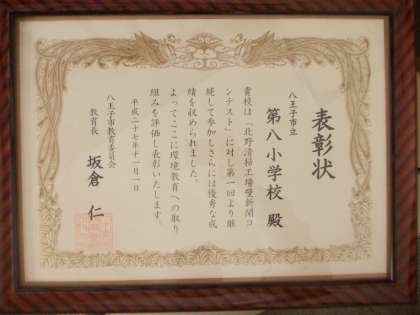 表彰状
八王子市立
第八小学校 殿
貴校は「北野清掃工場壁新聞コ
ンテスト」に対し第一回より継
続して参加しさらには優秀な成
績を収められました。
よってここに環境教育への取り
組みを評価し表彰いたします。
平成二十七年十一月一日
八王子市教育委員会
教育長 坂倉 仁